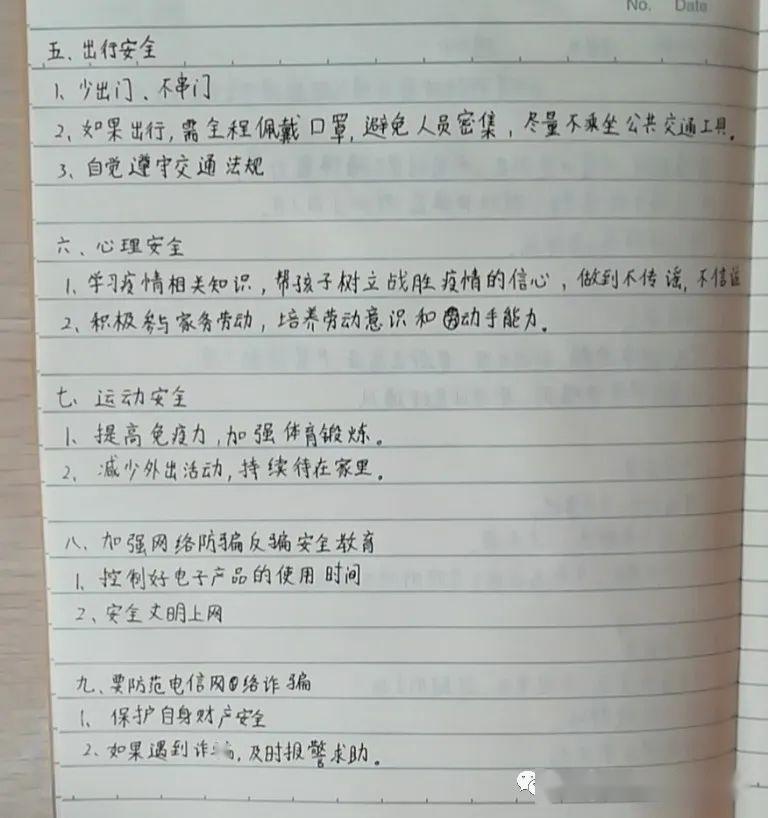 No. Date
五、出行安全
1、少出门、不串门
2、如果出行,需全程佩戴口罩,避免人员密集,尽量不乘坐公共交通工具。
3、自觉遵守交通法规
六、心理安全
1、学习疫情相关知识,帮孩子树立战胜疫情的信心,做到不传谣,不信谣
2、积极参与家务劳动,培养劳动意识和动手能力。
七、运动安全
1、提高免疫力,加强体育锻炼。
2、减少外出活动,持续待在家里。
八、加强网络防骗反骗安全教育
1、控制好电子产品的使用时间
2、安全文明上网
九、要防范电信网络诈骗
1、保护自身财产安全
2、如果遇到诈骗,及时报警求助。